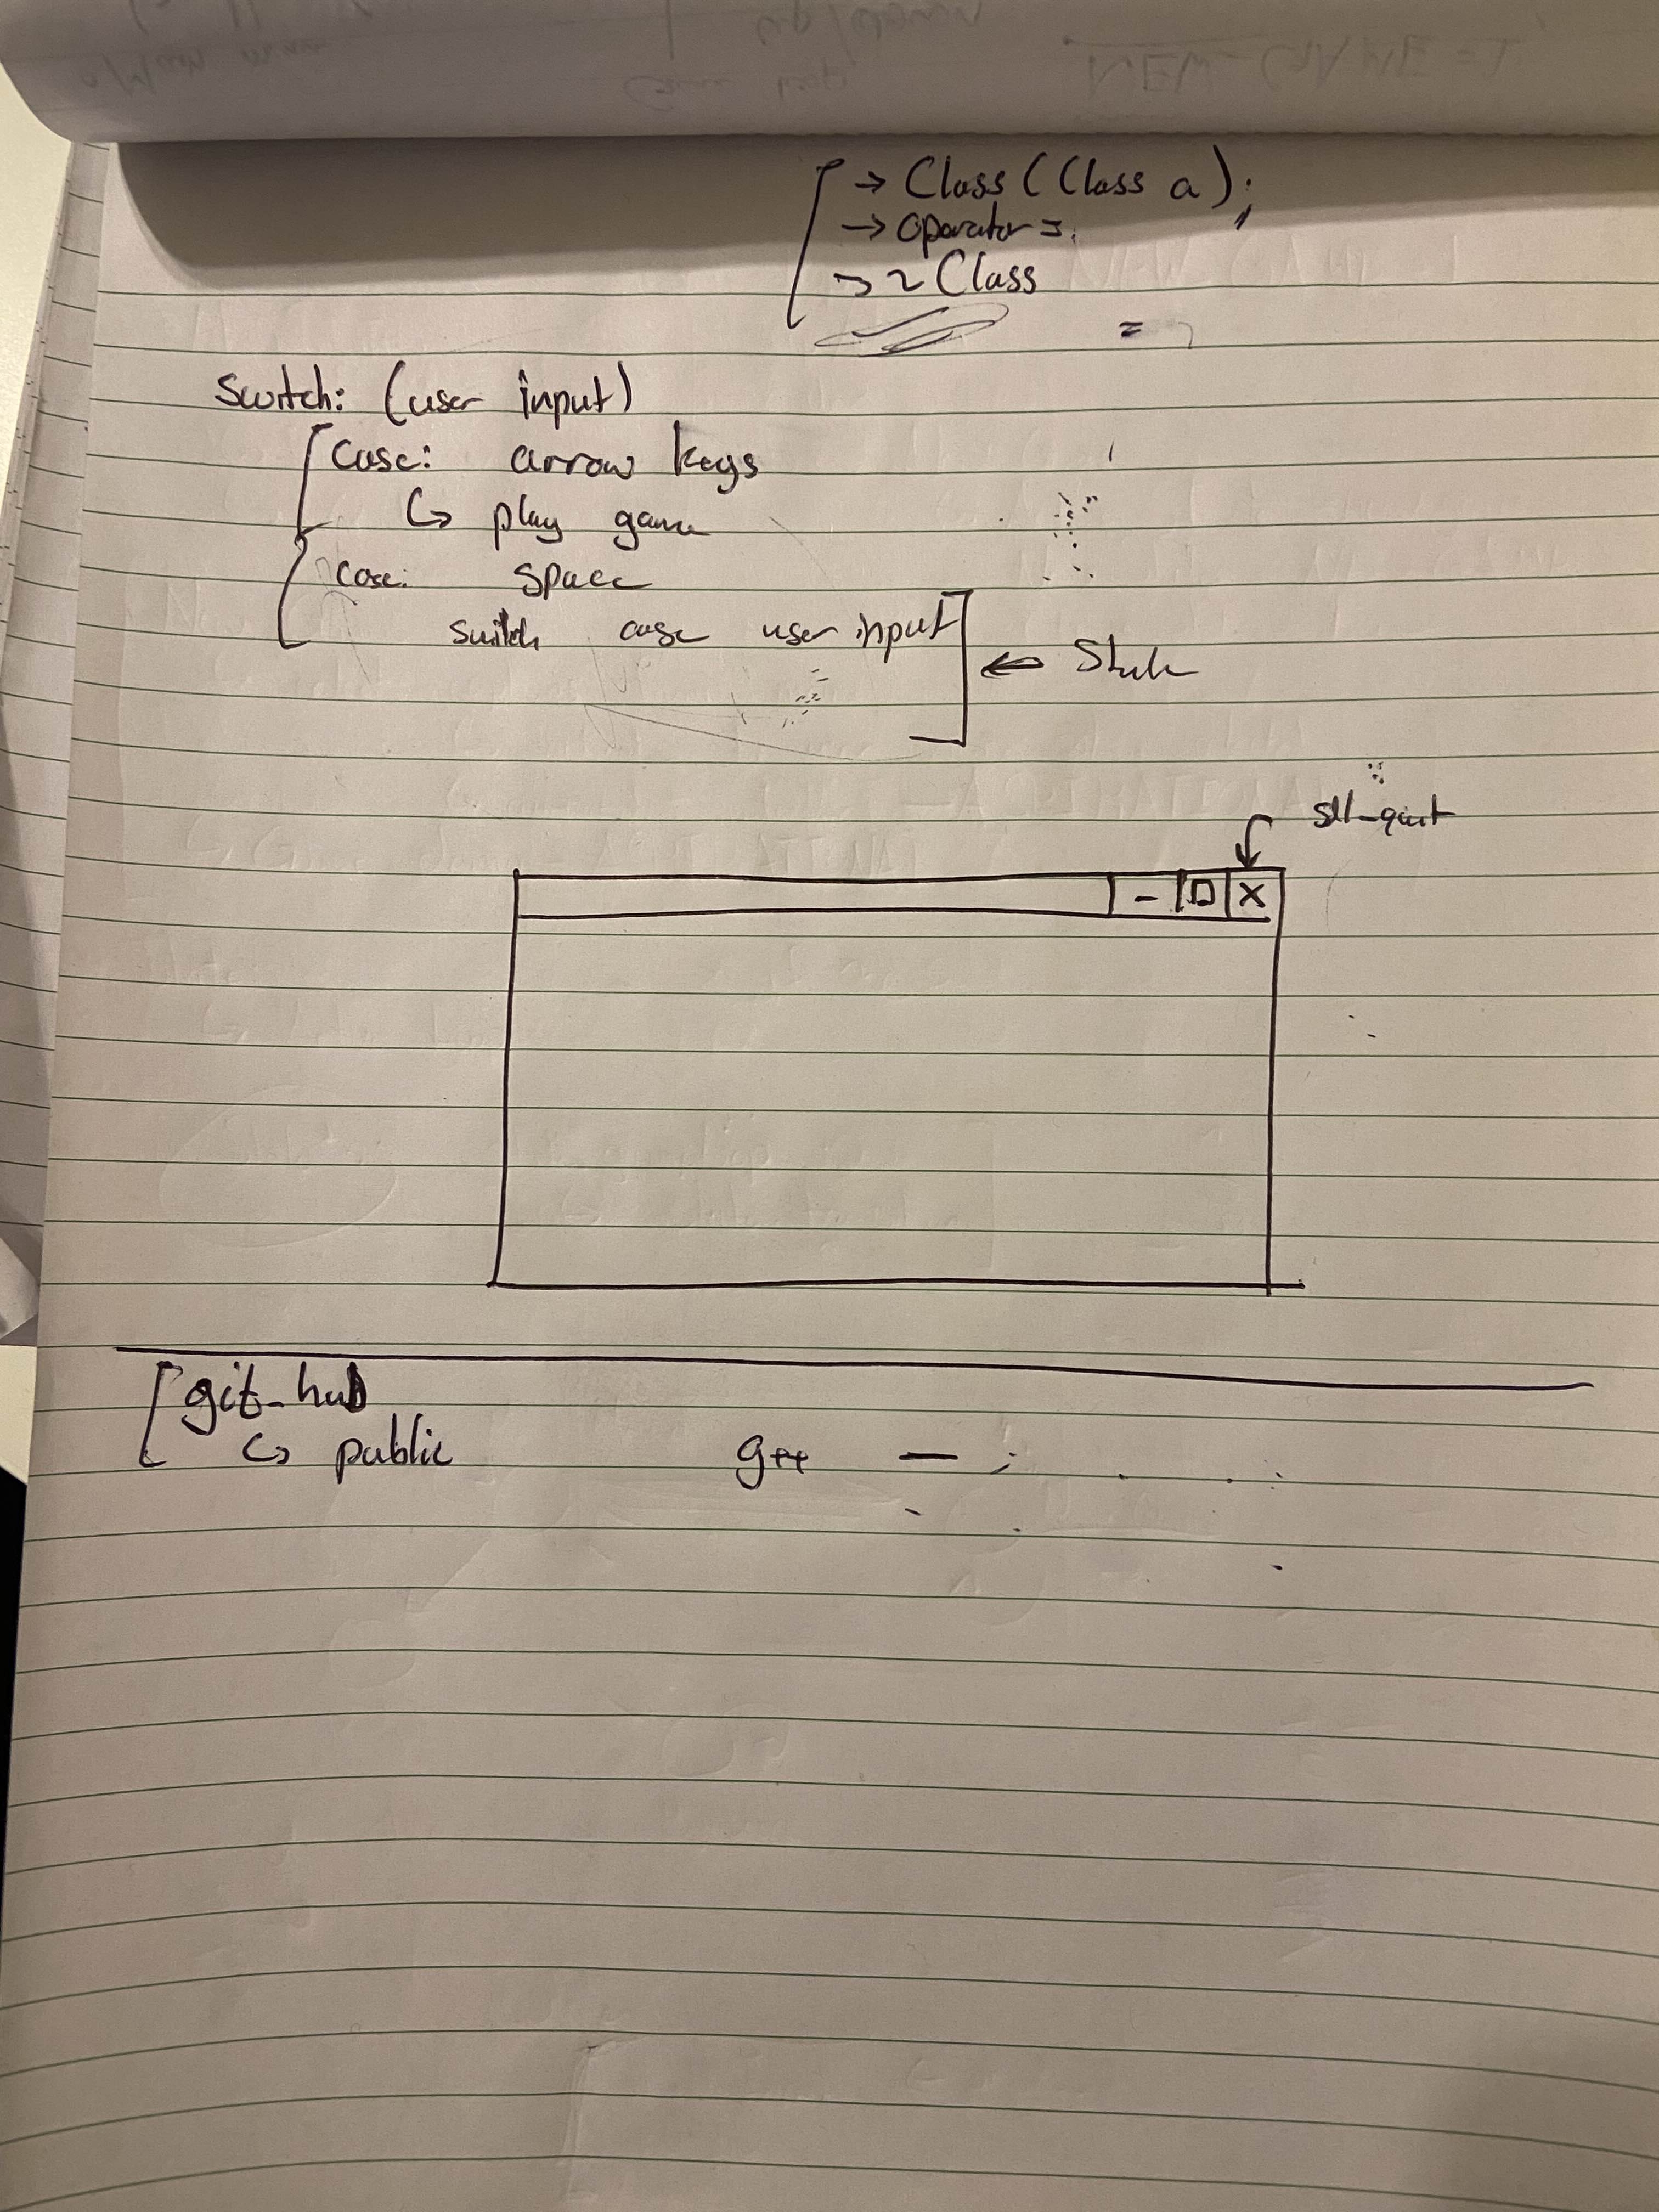 → Class (Class a);
→ operator =;
→ ~Class
=
Switch: (user input)
case: arrow keys
↳ play game
case: space
switch case user input
← State
sdl_quit
- □ X
git_hub
↳ public
g++ — ;